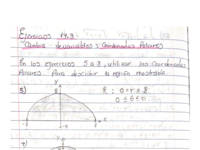 Ejercicios 14.3
Cambio de variables: Coordenadas Polares
En los ejercicios 5 a 8, utilizar las coordenadas
Polares para describir la región mostrada.
5)
R: 0≤r≤8
0≤θ≤π
7)